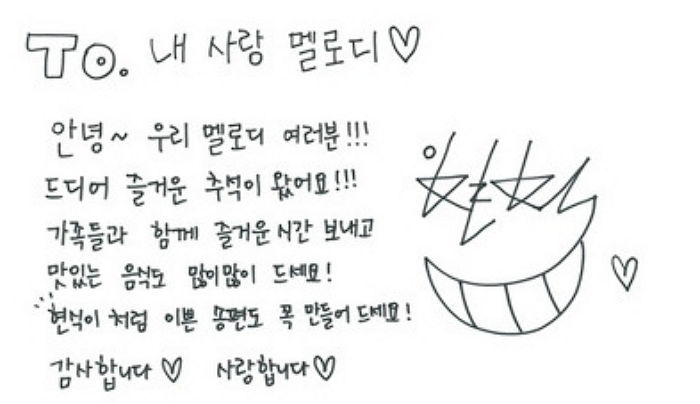 To. 내 사랑 멜로디♡
안녕~ 우리 멜로디 여러분!!!
드디어 즐거운 추석이 왔어요!!!
가족들과 함께 즐거운 시간 보내고
맛있는 음식도 많이많이 드세요!
현식이 처럼 이쁜 송편도 꼭 만들어 드세요!
감사합니다♡ 사랑합니다♡